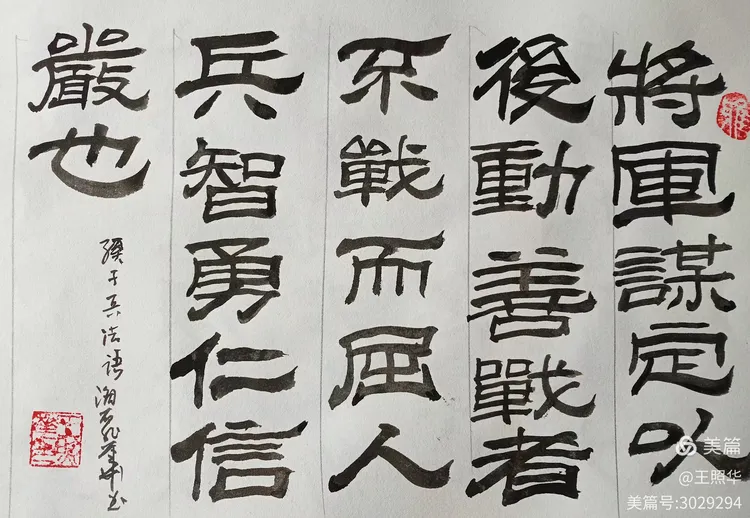 將軍謀定以
後動善戰者
不戰而屈人
兵智勇仁信
嚴也
孫子兵法語
美篇
@王照华
美篇号:3029294